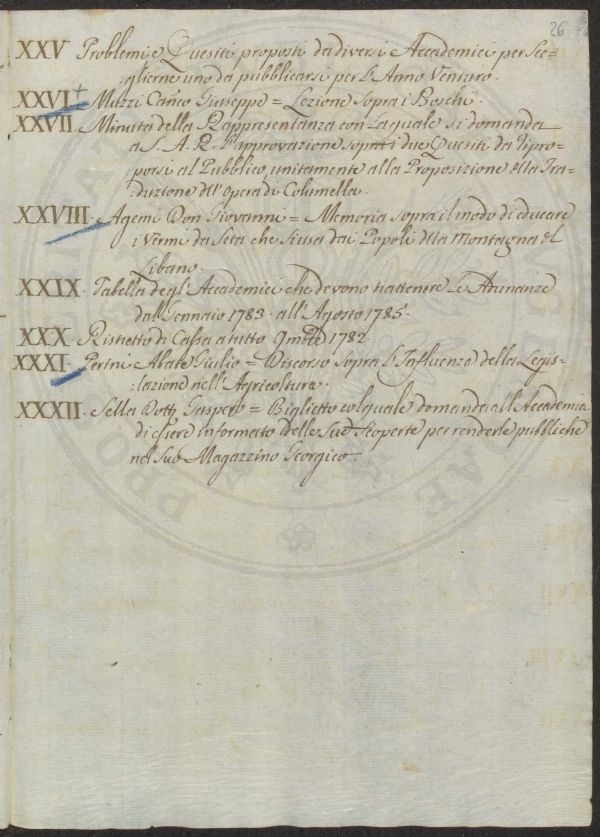 26
XXV Problemi e Quesiti proposti da diversi Accademici per Sce=
:glierne uno da pubblicarsi per l'Anno Venturo.
XXVI + Muzzi Canco Giuseppe = Lezione sopra i Boschi.
XXVII. Minuta della Rappresentanza con la quale si domanda
a S. A. R. l'approvazione sopra i due Quesiti da Pro=
porsi al Pubblico, unitamente alla Proposizione della Tra=
duzione dell'Opera di Columella.
XXVIII. Agemi Don Giovanni = Memoria sopra il modo di educare
i Vermi da Seta che si usa dai Popoli della Montagna del
Libano.
XXIX. Tabella degl'Accademici che devono trattenere le Adunanze
dal Gennaio 1783. all'Agosto 1785.
XXX. Ristretto di Cassa a tutto 9mbre 1782.
XXXI. Perini Abate Giulio = Discorso sopra l'Influenza della Legis=
:lazione nell'Agricoltura.
XXXII. Sella Dott. Gaspero = Biglietto col quale domanda all'Accademia
di essere informato delle sue Scoperte per renderle pubbliche
nel suo Magazzino Georgico.